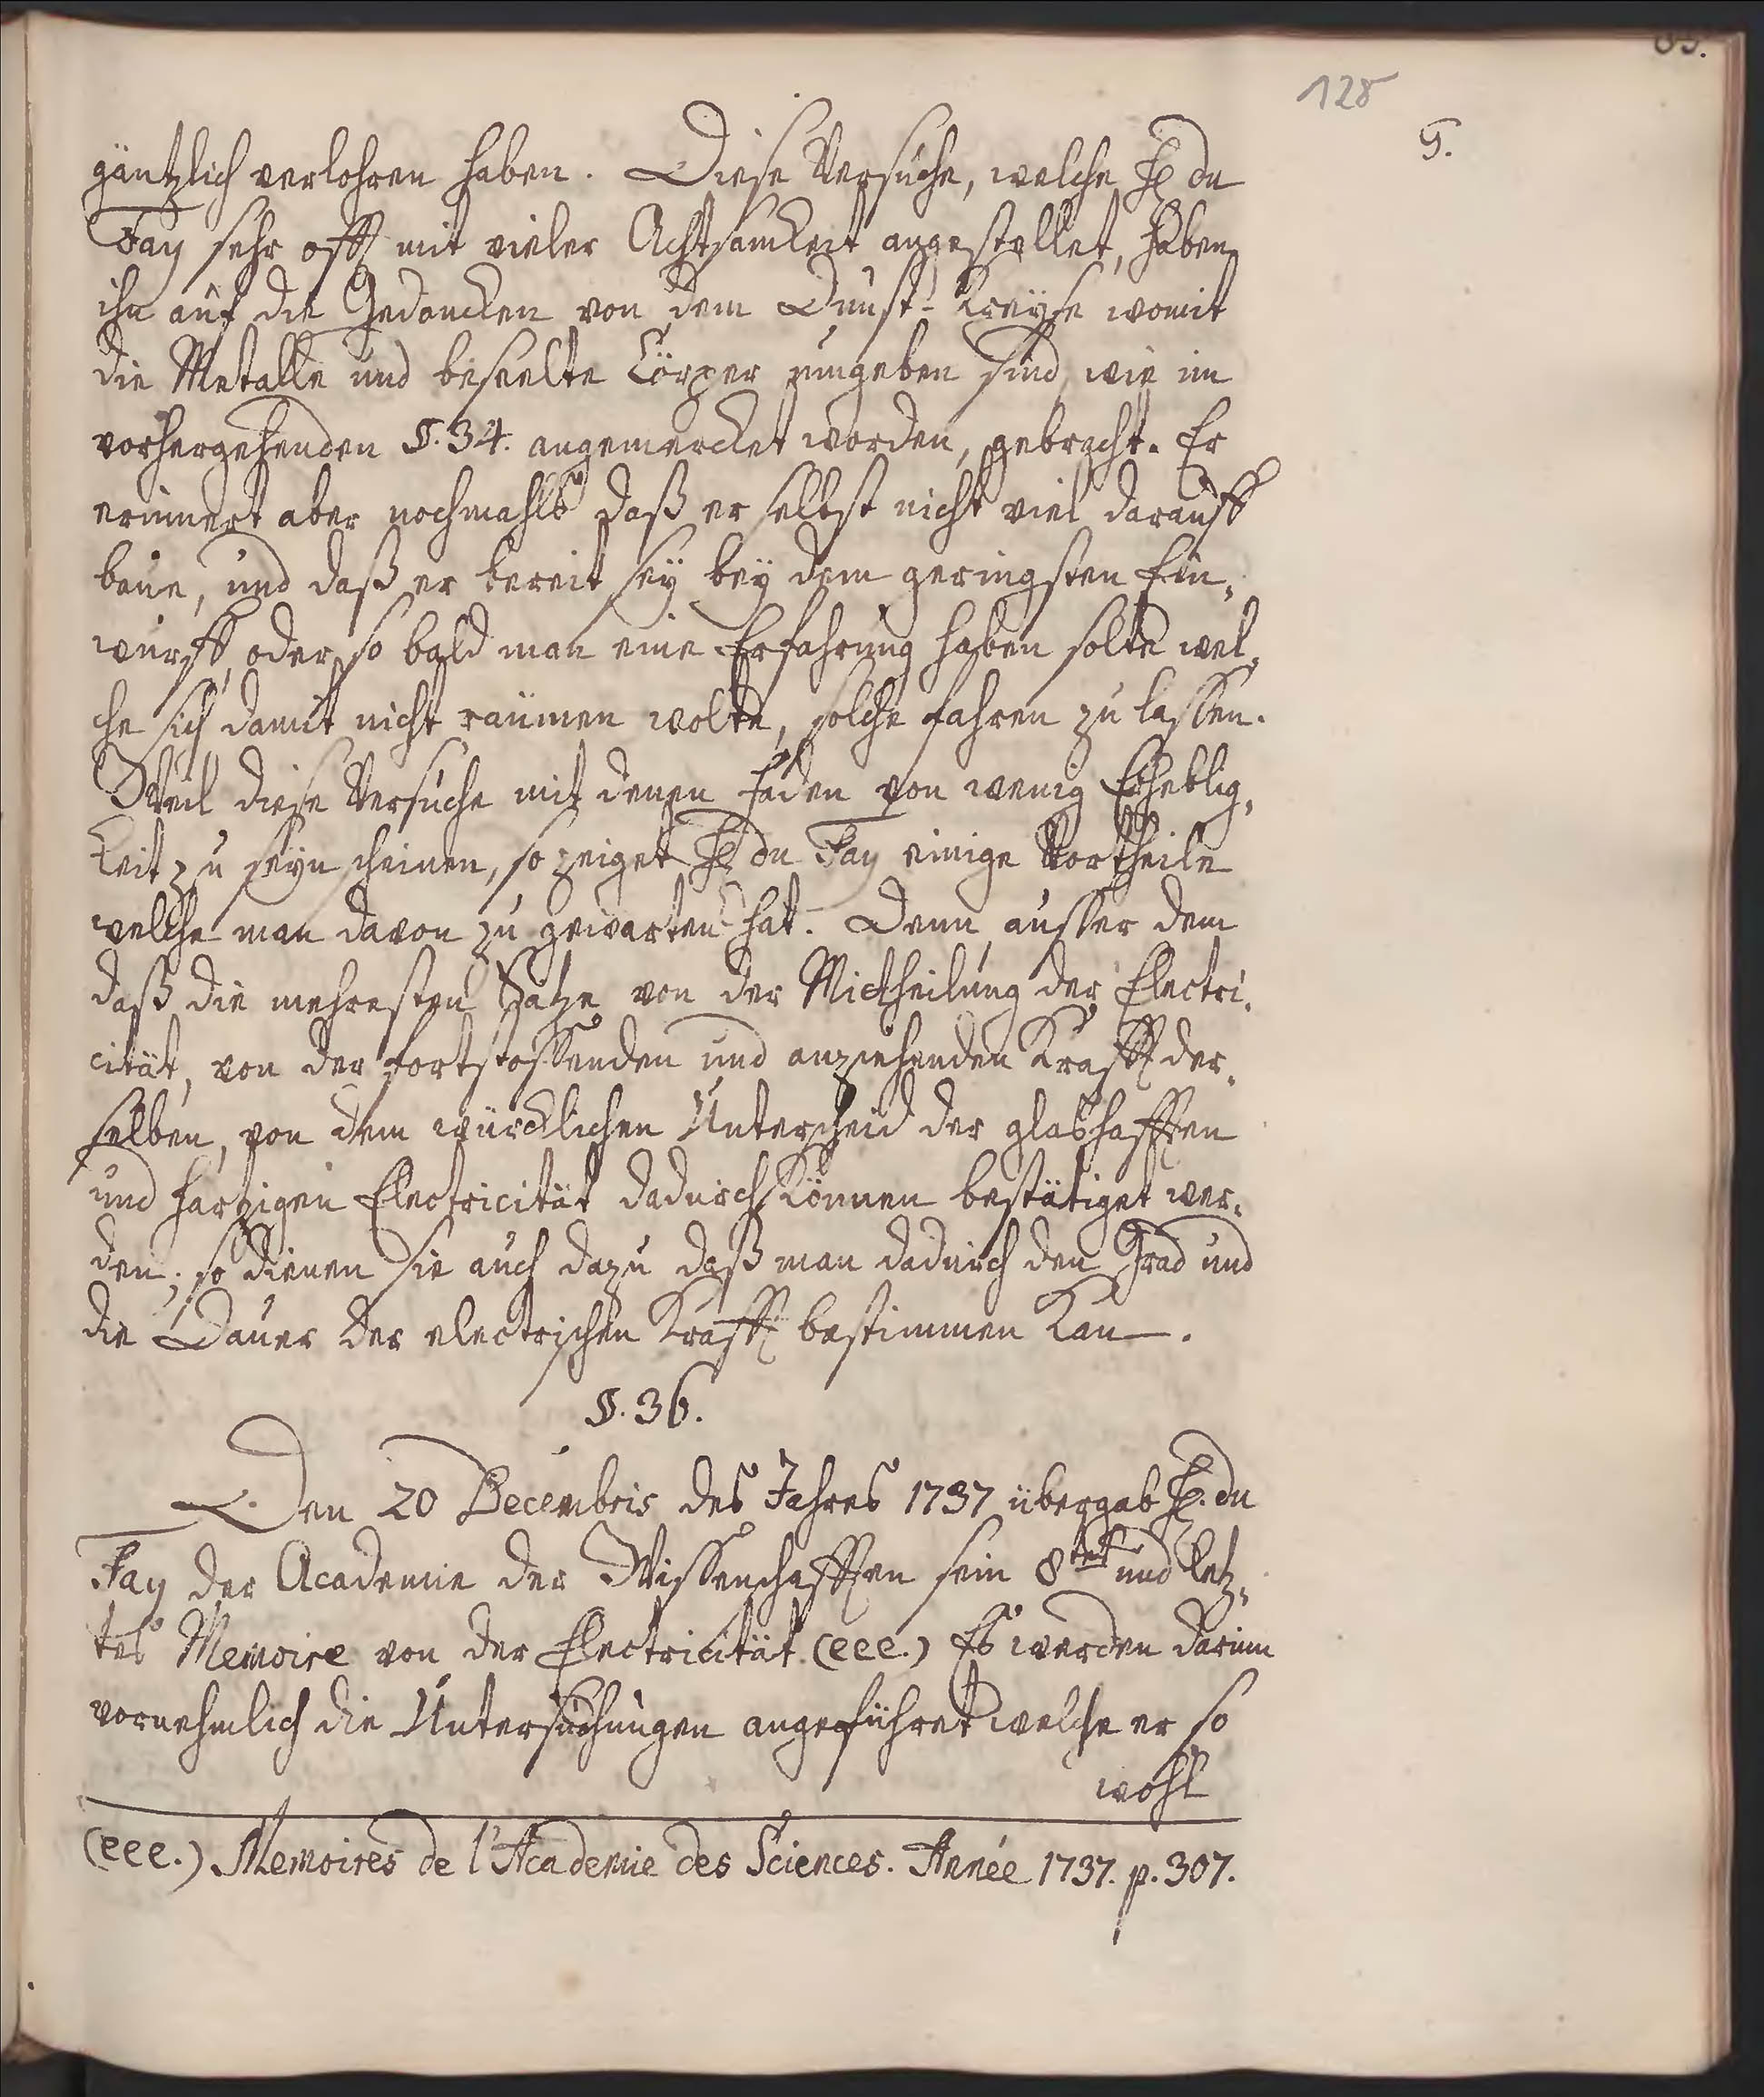 128
G.
gäntzlich verlohren haben. Diese Versuche, welche H du
Fay sehr offt mit vieler Achtsamkeit angestellet, haben
ihn auf die Gedancken von dem Dunst-Kreyse womit
die Metalle und beseelte Cörper umgeben sind, wie im
vorhergehenden §. 34. angemercket worden, gebracht. Er
erinnert aber nochmahls daß er selbst nicht viel darauff
baue, und daß er bereit sey bey dem geringsten Ein-
wurff, oder so bald man eine Erfahrung haben solte wel-
che sich damit nicht räumen wolte, solche fahren zu lassen.
Weil diese Versuche mit denen Fäden von wenig Erheblig-
keit zu seyn scheinen, so zeiget H du Fay einige Vortheile
welche man davon zu gewarten hat. Denn, ausser dem
daß die mehresten Sätze von der Mittheilung der Electri-
cität, von der fortstossenden und anziehenden Krafft der-
selben, von dem würcklichen Unterscheid der glashafften
und hartzigen Electricität dadurch können bestätiget wer-
den; so dienen sie auch dazu daß man dadurch den Grad und
die Dauer der electrischen Krafft bestimmen kan.
§. 36.
Den 20 Decembris des Jahres 1737 übergab H. du
Fay der Academie der Wissenschafften sein 8tes und letz-
tes Memoire von der Electricität. (eee.) Es werden darinn
vornehmlich die Untersuchungen angeführet welche er so
wohl
(eee.) Memoires de l'Academie des Sciences. Année 1737. p. 307.